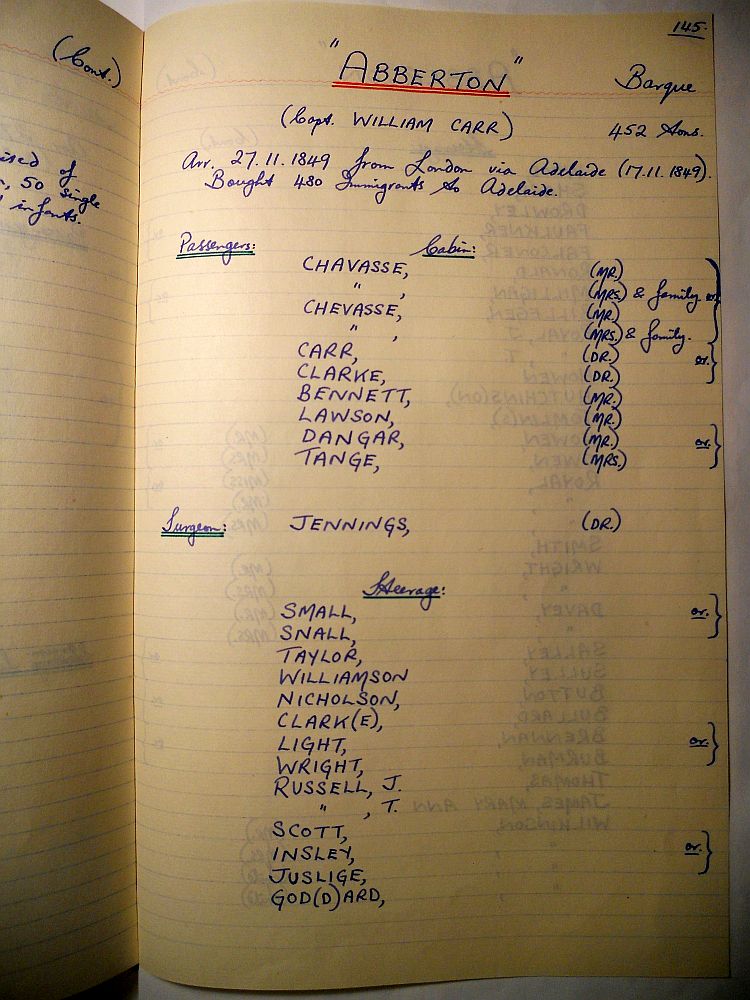 (Cont.)
of
50 single
infants.
145.
"ABBERTON"
Barque
(Capt. WILLIAM CARR)
452 tons.
Arr. 27.11.1849 from London via Adelaide (17.11.1849).
Bought 480 Immigrants to Adelaide.
Passengers: Cabin:
CHAVASSE, (MR.)
" , (MRS) & family or.
CHEVASSE, (MR.)
" , (MRS) & family.
CARR, (DR.) or.
CLARKE, (DR.)
BENNETT, (MR.)
LAWSON, (MR.)
DANGAR, (MR.) or.
TANGE, (MRS.)
Surgeon: JENNINGS, (DR.)
Steerage:
SMALL, or.
SNALL,
TAYLOR,
WILLIAMSON
NICHOLSON,
CLARK(E),
LIGHT, or.
WRIGHT,
RUSSELL, J.
" , T.
SCOTT,
INSLEY, or.
JUSLIGE,
GOD(D)ARD,